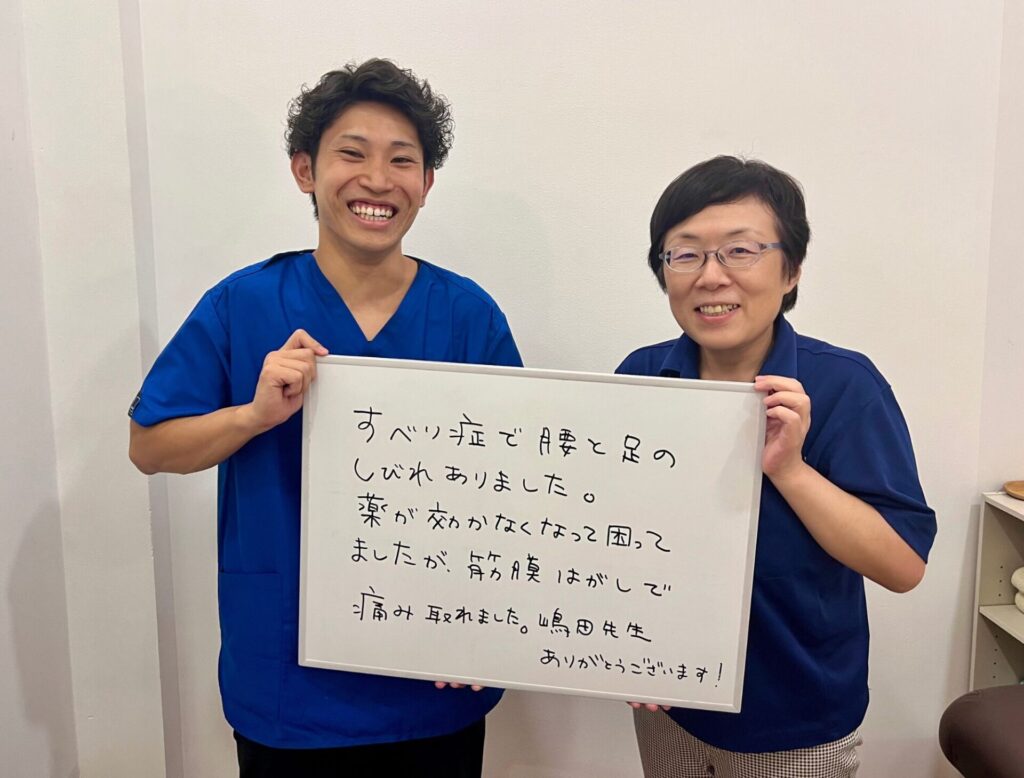 すべり症で腰と足の
しびれありました。
薬が効かなくなって困って
ましたが、筋膜はがしで
痛み取れました。嶋田先生
ありがとうございます！